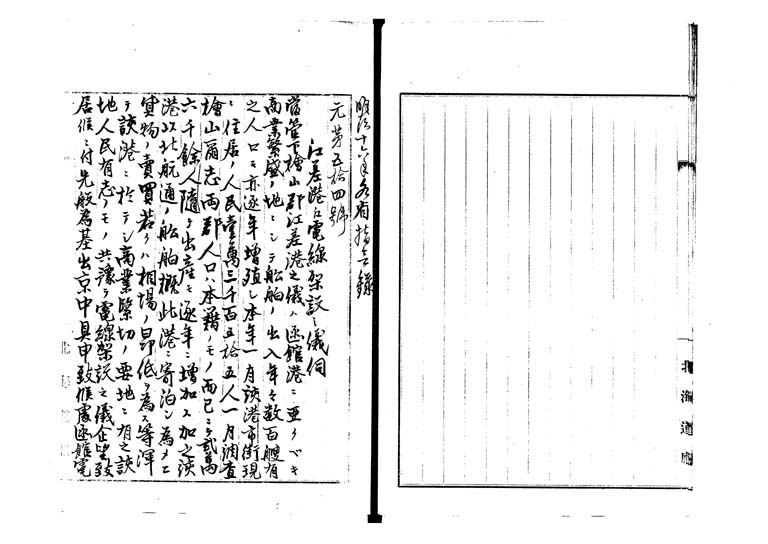 明治十六年各省指令録
元第五拾四號
江差港ヘ電線架設之儀伺
當管下檜山郡江差港之儀ハ函館港ニ亜クベキ
商業繁盛ノ地ニシテ船舶ノ出入年々数百艘有
之人口モ亦逐年増殖シ本年一月該港市街現
ニ住居ノ人民壹萬三千百五拾五人一月調査
檜山爾志両郡人口ハ本籍ノモノ而已ニテ貳萬
六千餘人隨テ出産モ逐年ニ増加ス加之該
港以北航通ノ船舶概此港ニ寄泊シ為メニ
貨物ノ賣買若クハ相場ノ昂低ヲ為ス等渾
テ該港ニ於テシ商業緊切ノ要地ニ有之該
地人民有志ノモノ共豫テ電線架設之儀企望致
居候ニ付先般為基出京中具申致候處函館電
北海道廳